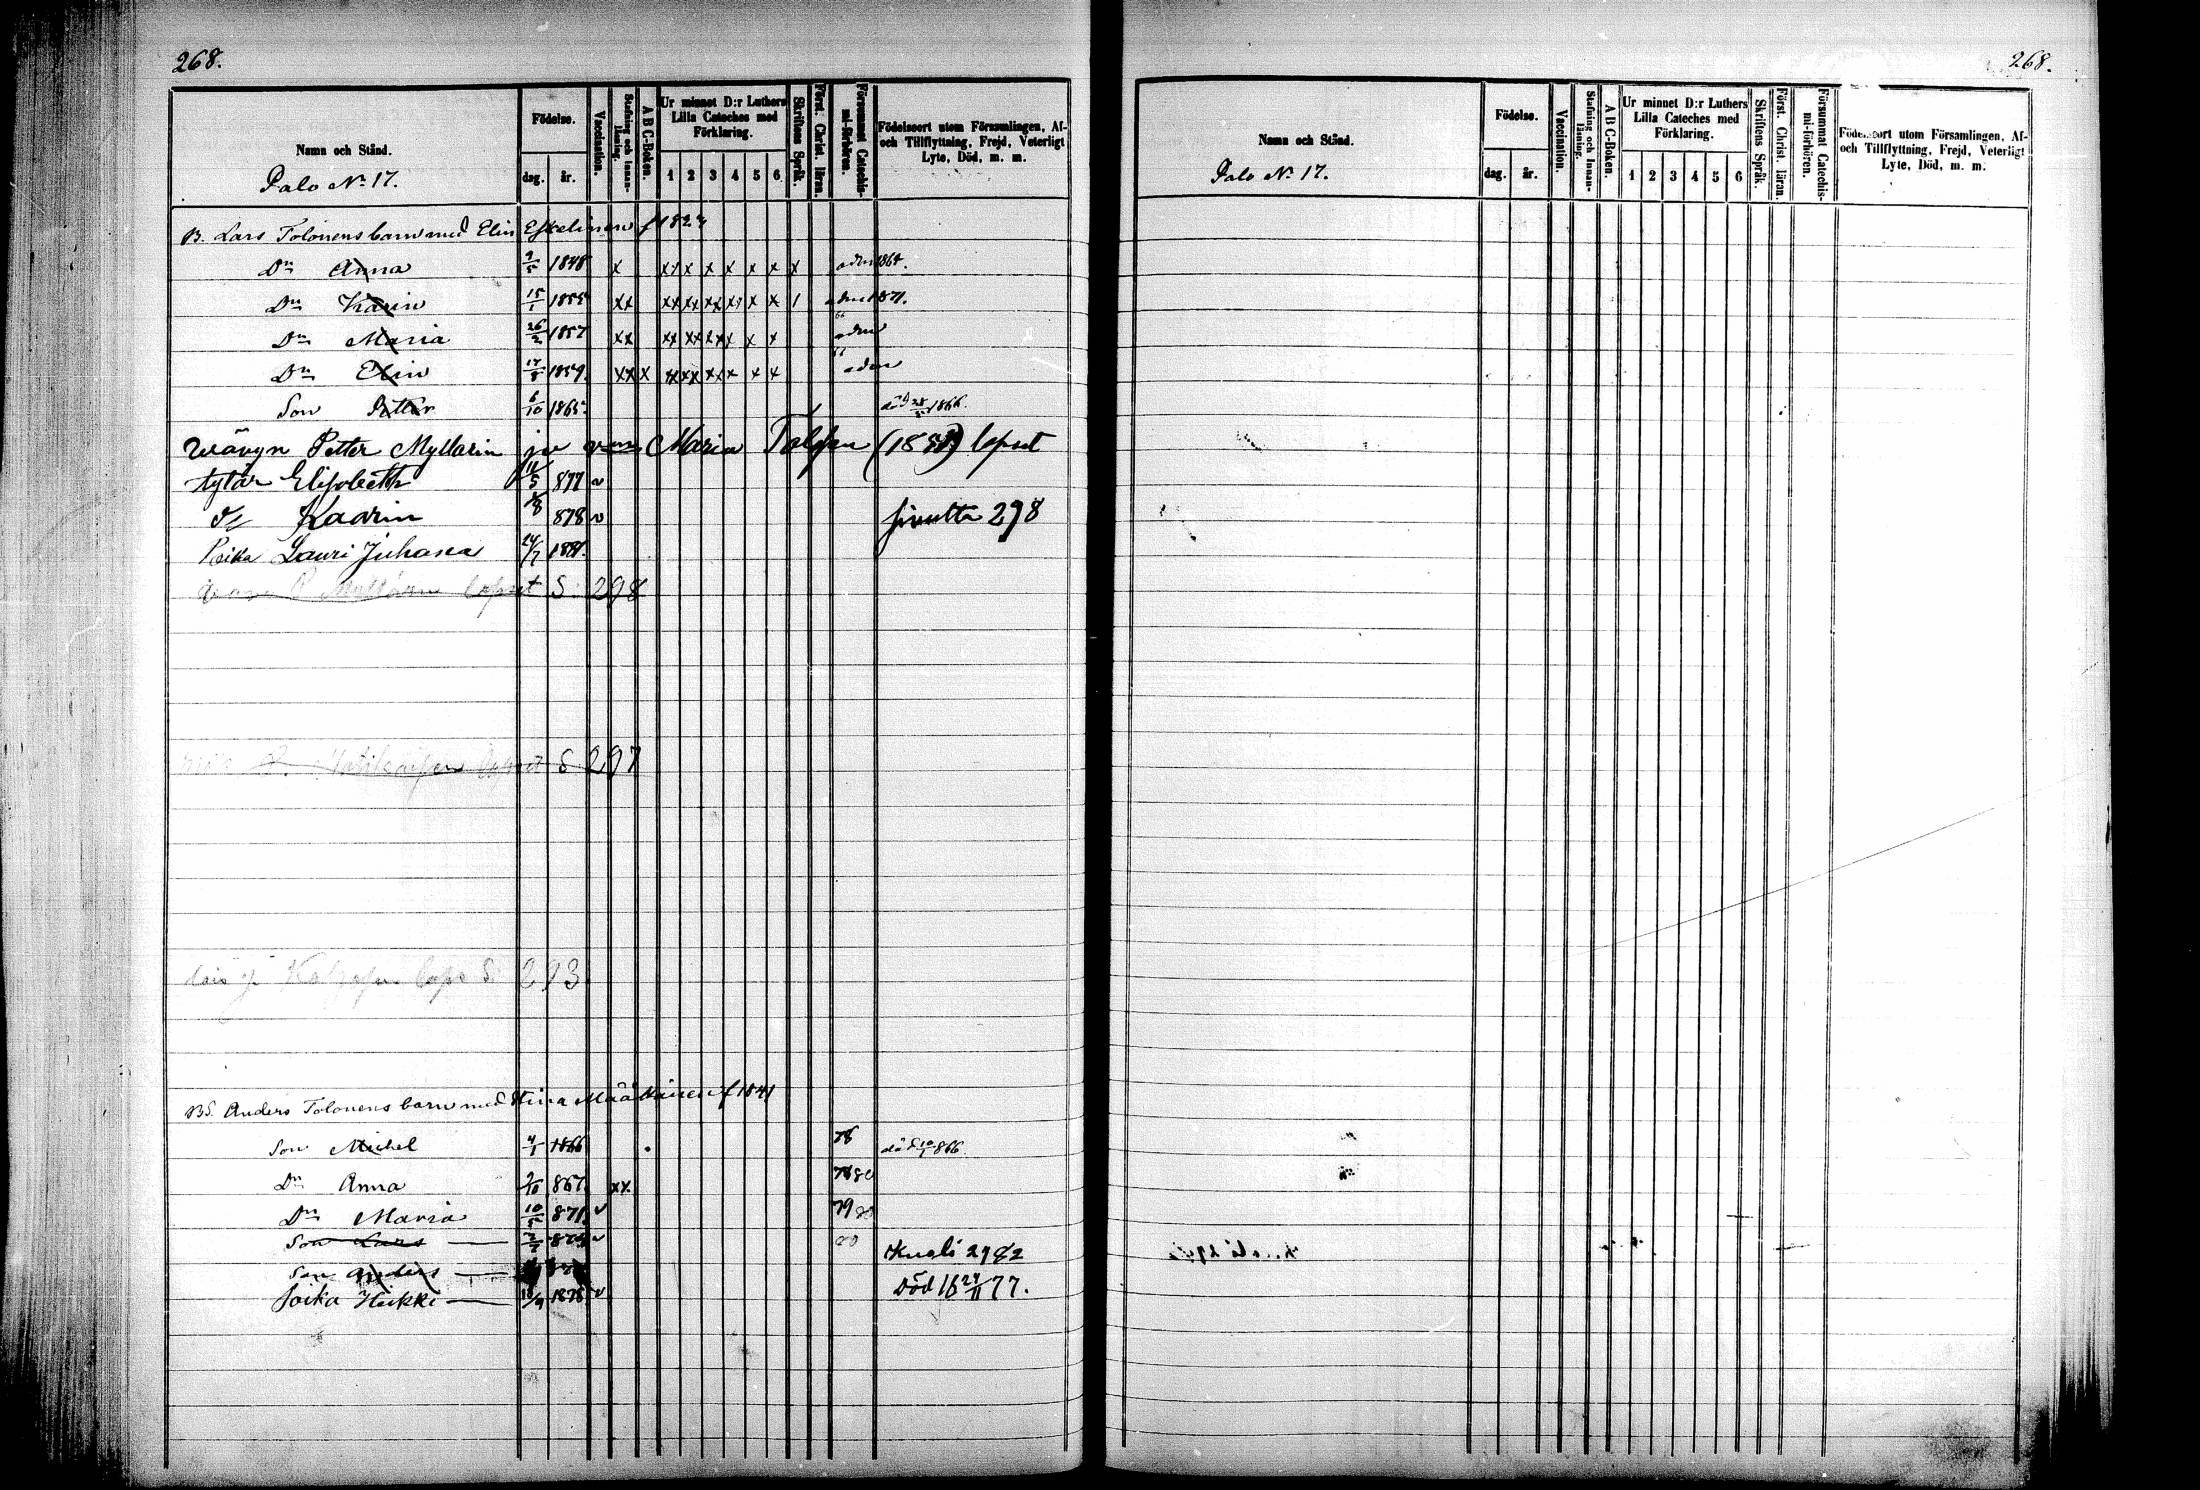 268.
Namn och Stånd.
Födelse.
dag. år.
Vaccination.
Stafning och Innanläsning.
A B C-Boken.
Ur minnet D:r Luthers Lilla Cateches med Förklaring.
1 2 3 4 5 6
Skriftens Språk.
Först. Christ. läran.
Försummat Catechis-mi-förhören.
Födelseort utom Församlingen, Af- och Tillflyttning, Frejd, Veterligt Lyte, Död, m. m.
Palo No 17.
B. Lars Tolonens barn med Elin Eskelinen f 1823
Dn Anna 9/5 1848 x xx x x x x x x adm 1864.
Dn Karin 15/1 1855 xx xx xx xx xx x x 1 adm 1871.
Dn Maria 26/2 1857 xx xx xx xx x x x 66 adm
Dn Elin 17/8 1859. xx x xx xx xx x x x 66 adm
Son Petter 6/10 1865. död 28/5 1866.
Wävyn Petter Myllärin ja vmn Maria Tolosen (1857) lapset
tytär Elisabeth 11/5 877 v
d:o Kaarin 8 878 v sivulta 298
Poika Lauri Juhana 24/7 1881.
P Myllärin lapset S. 298
lapset S 297
laps S. 293
BS. Anders Tolonens barn med Stina Määttäinen f 1841
Son Michel 4/1 1866 78 död 10/1 866.
Dn Anna 9/10 867. xx. 78 80
Dn Maria 10/5 871. v 79 80
Son Lars 874 v 80 Kuoli 29 82
Son Anders Död 16 24/11 77.
Poika Heikki 18/9 1878 v
268.
Namn och Stånd.
Födelse.
dag. år.
Vaccination.
Stafning och Innanläsning.
A B C-Boken.
Ur minnet D:r Luthers Lilla Cateches med Förklaring.
1 2 3 4 5 6
Skriftens Språk.
Först. Christ. läran.
Försummat Catechis-mi-förhören.
Födelseort utom Församlingen, Af- och Tillflyttning, Frejd, Veterligt Lyte, Död, m. m.
Palo No 17.